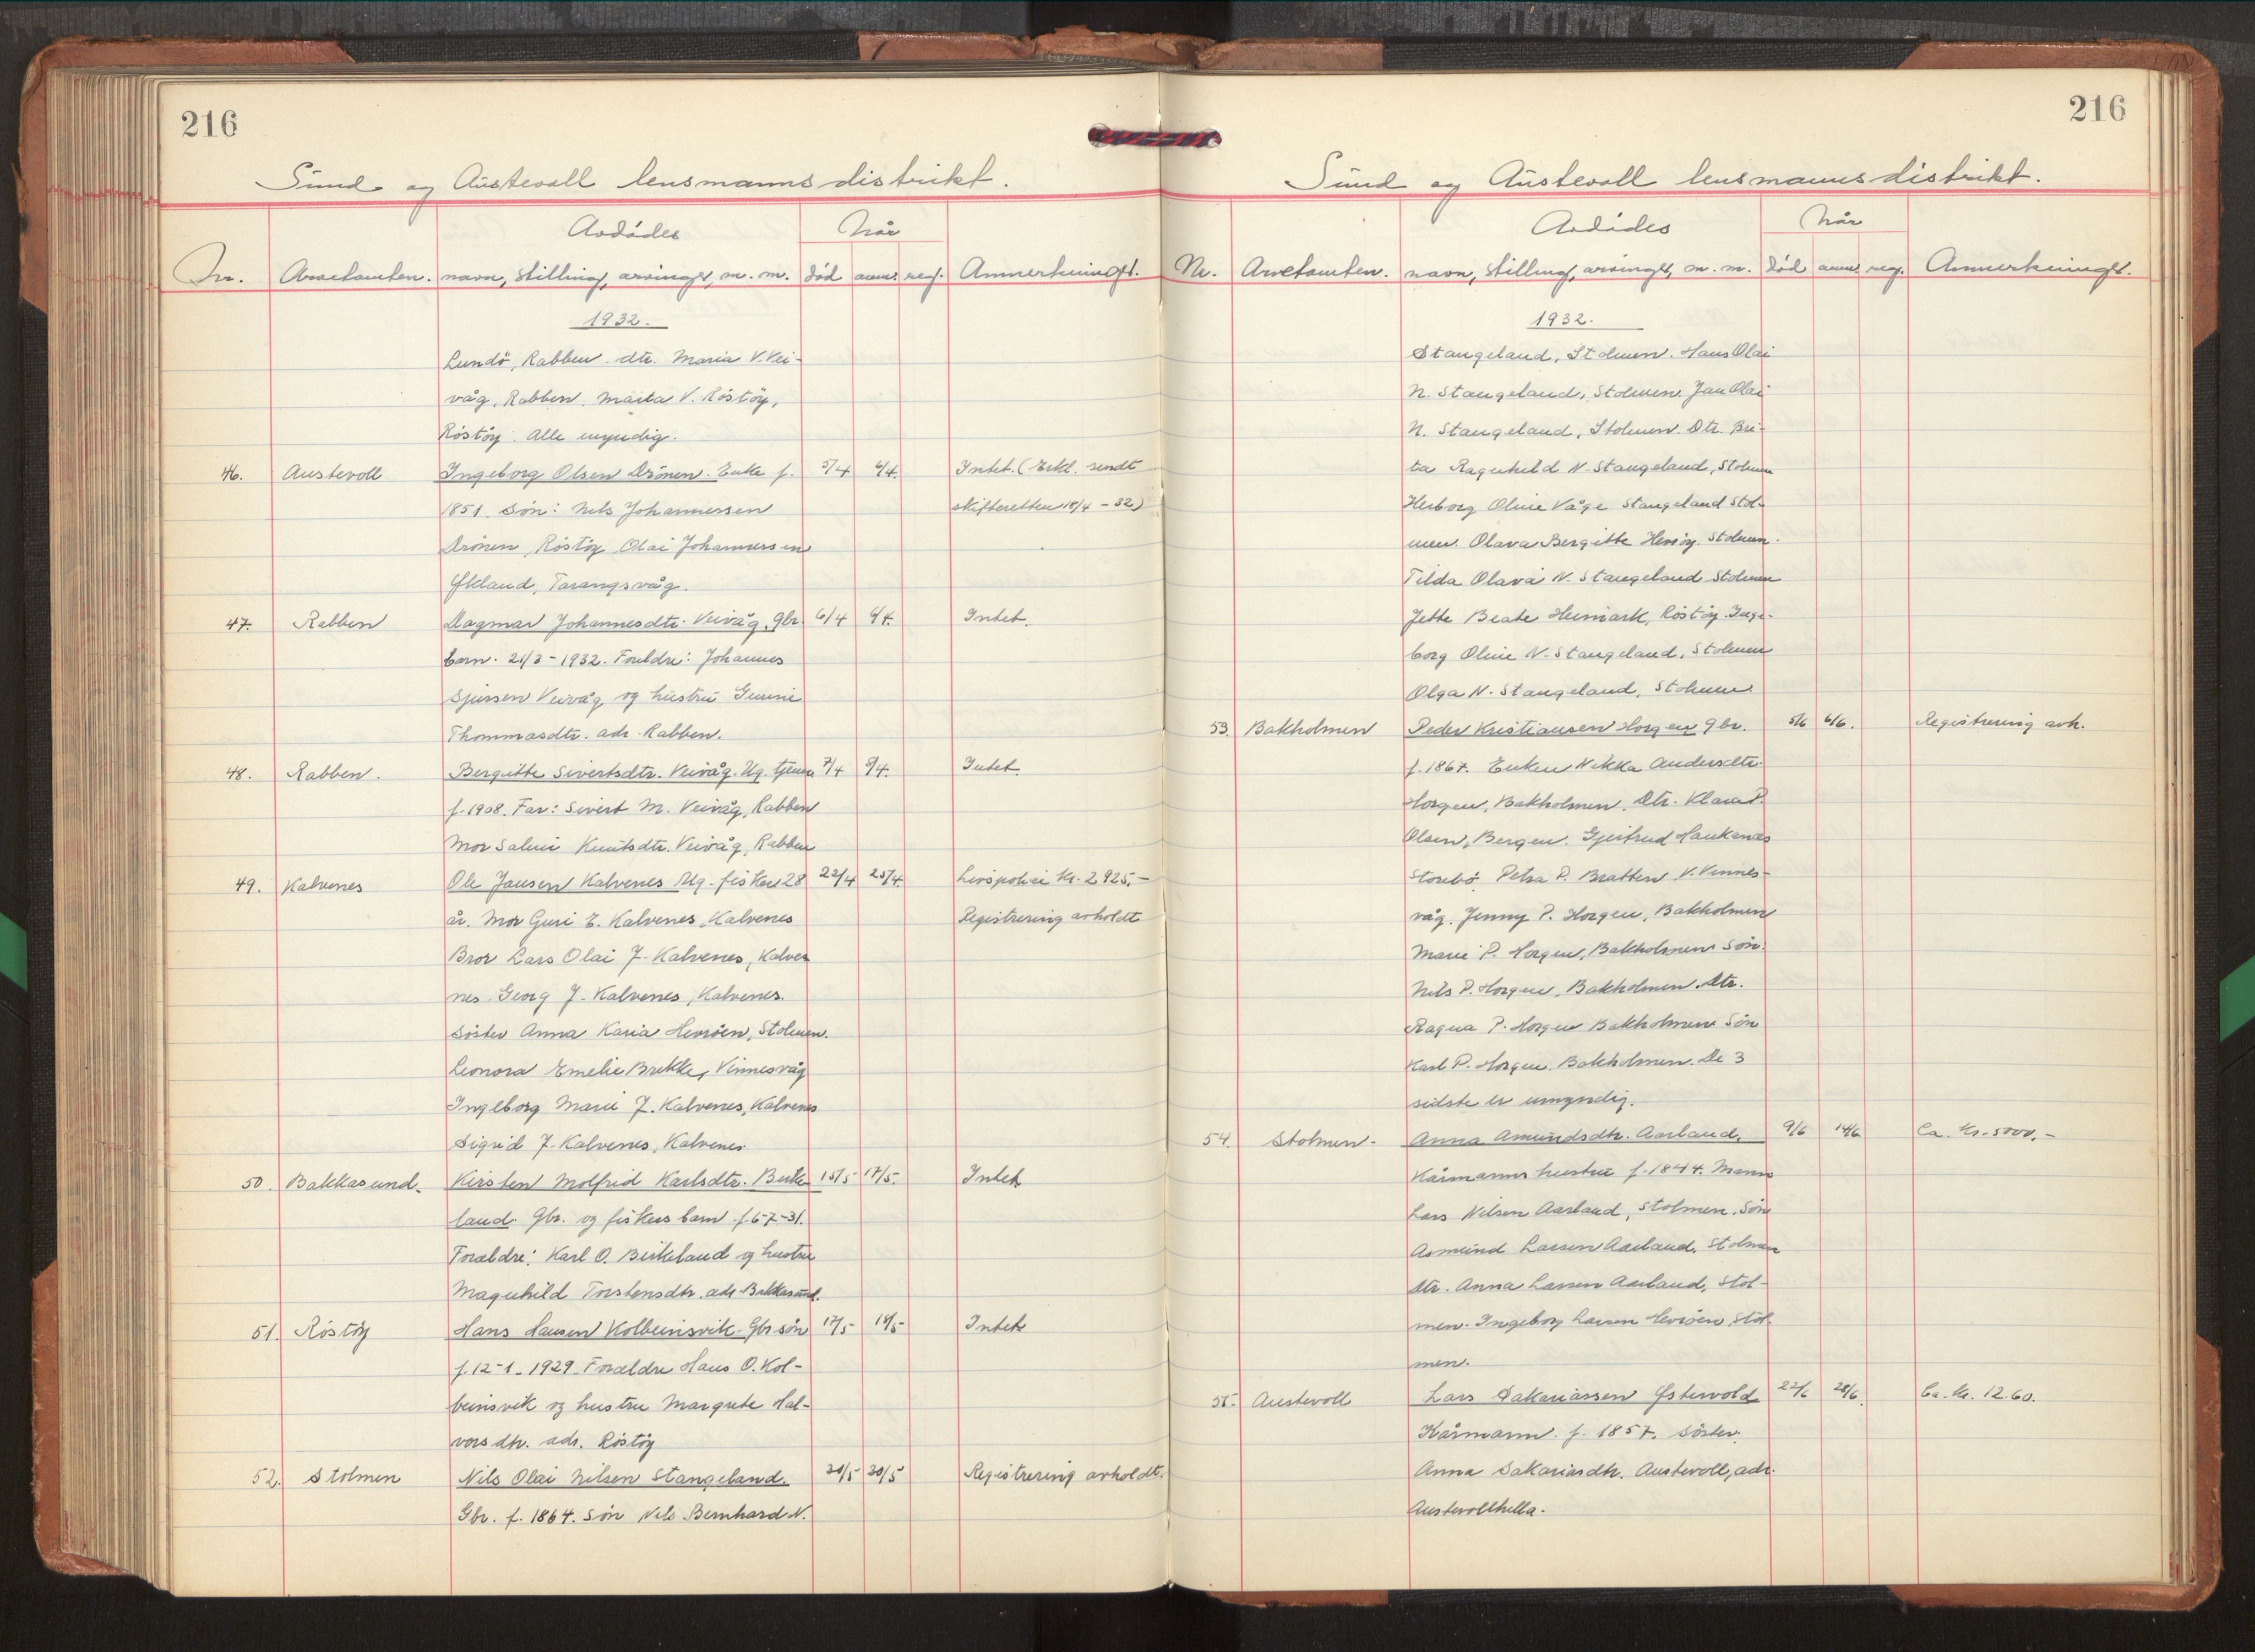 216
Sund og Austevoll lensmannsdistrikt.
Avdødes
Når
Nr. Anetamten. navn, stilling, arvinger, m. m. død anm. reg. Anmerkninger.
1932.
Lundø, Rabben. dtr. Maria V. Vei-
våg, Rabben. Marta V. Röstöy,
Röstöy. Alle myndig.
46. Austevoll Ingeborg Olsen Drönen. Enke f. 5/4 6/4. Intet. (Erkl. sendt
1851. Sön: Nils Johannessen skifteretten 18/4 - 32)
Drönen, Röstöy Olai Johannessen
Økland, Torangsvåg.
47. Rabben Dagmar Johannesdtr. Veivåg. gbr. 6/4 9/4. Intet.
barn. 21/3 - 1932. Foreldre: Johannes
Sjursen Veivåg og hustru Gunni
Thommasdtr. adr. Rabben.
48. Rabben. Bergitte Sivertsdtr. Veivåg. Ug. tjener 7/4 9/4. Intet.
f. 1908. Far: Sivert M. Veivåg, Rabben
Mor Salmi Knutsdtr. Veivåg, Rabben
49. Kalvenes Ole Jansen Kalvenes Ug. fisker 28 22/4 25/4. Livspolici kr. 2925.-
år. Mor Guri E. Kalvenes, Kalvenes Registrering avholdt
Bror Lars Olai J. Kalvenes, Kalve
nes. Georg J. Kalvenes, Kalvenes.
Söster Anna Karia Hevröen, Stolmen.
Leonora Emelie Brekke, Vinnesvåg
Ingeborg Marie J. Kalvenes, Kalvenes
Sigrid J. Kalvenes, Kalvenes
50. Bakkasund. Kirsten Molfrid Karlsdtr. Birke 15/5 17/5. Intet
land. Gbr. og fiskers barn f. 6-7-31.
Foreldre: Karl O. Birkeland og hustru
Magnhild Torstensdtr. adr. Bakkasund.
51. Röstöy Hans Hansen Kolbeinsvik. Gbr sön 17/5 19/5 Intet
f. 12-1-1929. Foreldre Hans O. Kol-
beinsvik og hustru Margrete Hal-
vorsdtr. adr. Röstöy
52. Stolmen Nils Olai Nilsen Stangeland. 30/5 30/5 Registrering avholdt.
Gbr. f. 1864. Sön Nils Bernhard N.
216
Sund og Austevoll lensmannsdistrikt.
Avdødes
Når
Nr. Anetamten. navn, stilling, arvinger, m. m. død anm. reg. Anmerkninger.
1932.
Stangeland, Stolmen. Hans Olai
N. Stangeland, Stolmen. Jan Olai
N. Stangeland, Stolmen. Dtr. Bri-
ta Ragnhild N. Stangeland, Stolmen
Herborg Oline Våge Stangeland Stol-
men. Olava Bergitte Hevröy. Stolmen.
Tilda Olava N. Stangeland Stolmen
Jette Beate Heimark, Röstöy. Inge-
borg Oline N. Stangeland, Stolmen
Olga N. Stangeland, Stolmen
53. Bakholmen Peder Kristiansen Horgen gbr. 5/6 6/6. Registrering avh.
f. 1867. Enken Nikka Andersdtr.
Horgen, Bakholmen. Dtr. Klara P.
Olsen, Bergen. Gjertrud Haukanes
Storebö. Petra P. Bratten V. Vinnes-
våg. Jenny P. Horgen, Bakholmen
Marie P. Horgen, Bakholmen Sön.
Nils P. Horgen, Bakholmen. Dtr.
Ragna P. Horgen Bakholmen Sön
Karl P. Horgen. Bakholmen. De 3
sidste er umyndig.
54. Stolmen. Anna Amundsdtr. Aarland. 9/6 14/6 Ca. kr. 5000.-
Kårmanns hustru f. 1844. Mann
Lars Nilsen Aarland, Stolmen. Sön
Asmund Larsen Aarland, Stolmen
dtr. Anna Larsen Aarland, Stol-
men. Ingeborg Larsen Hevröen, Stol-
men.
55. Austevoll Lars Sakariassen Østervold 22/6 28/6. Ca. kr. 12.60.
Kårmann. f. 1857. Söster.
Anna Sakariasdtr. Austevoll, adr.
Austevollhella.